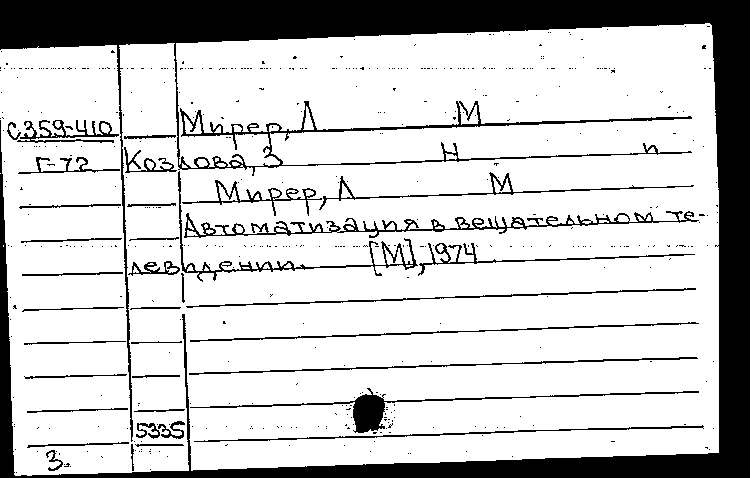 Мирер, Л М
С359-410
Г-72 Козлова, З Н п
Мирер, Л М
Автоматизация в вещательном те-
левидении. [М], 1974
5335
3.